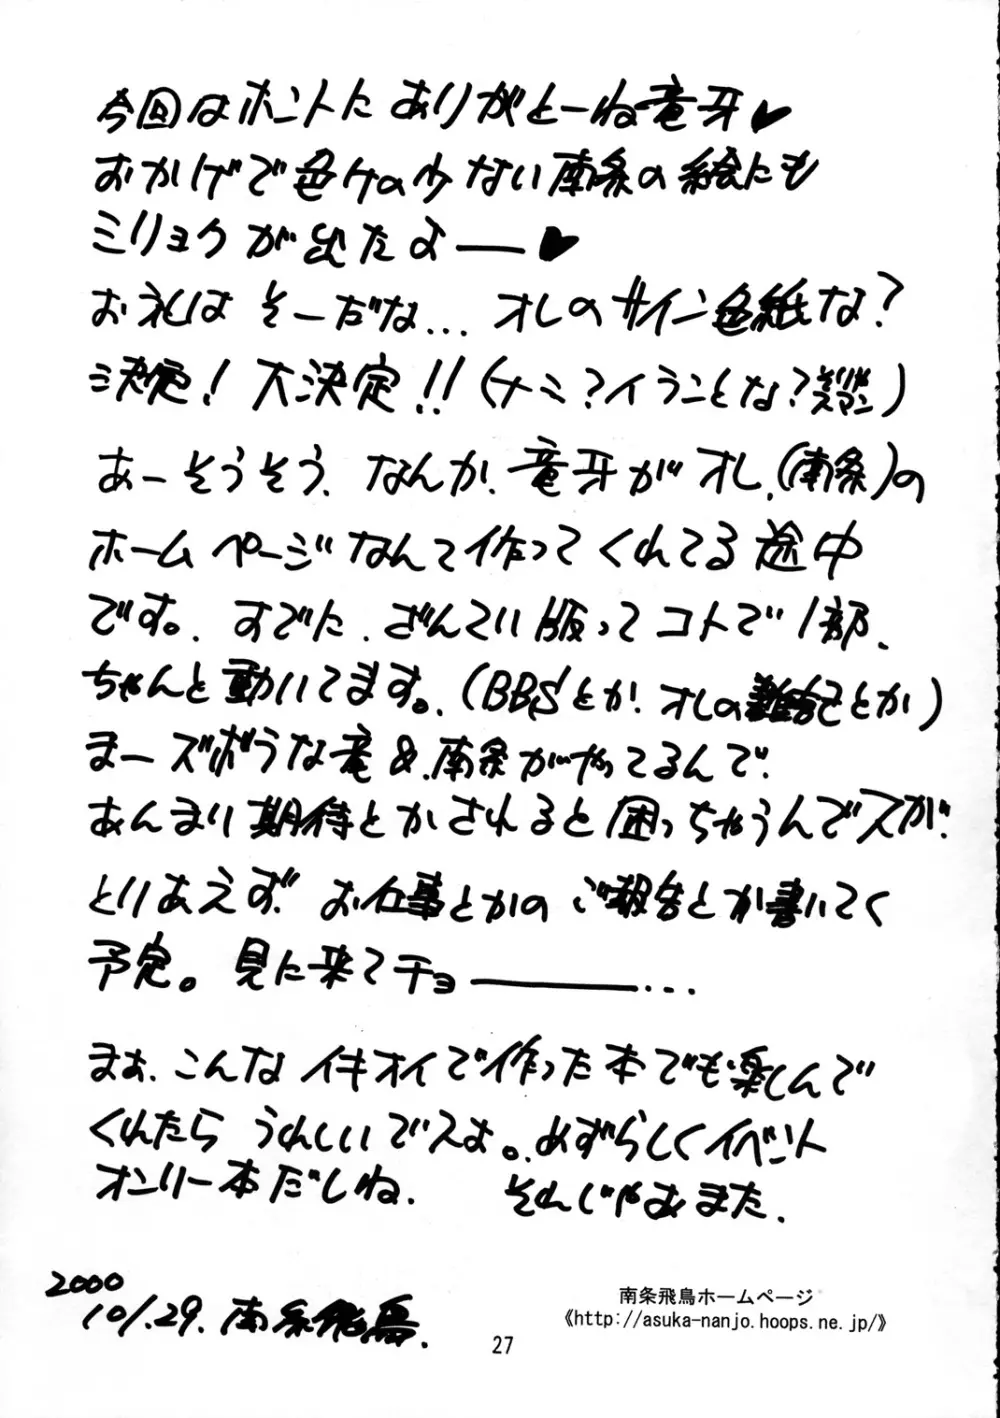 今回はホントにありがとーね竜牙♥
おかげで色ケの少ない南条の絵にも
ミリョクが出たよ――♥
お礼はそーだな...オレのサイン色紙な?
決定!大決定!!(ナミ?イランことな?スマン)
あーそうそう、なんか、竜牙がオレ、(南条)の
ホームページなんて作ってくれてる途中
です。すでに、ざんてい版ってコトで1部、
ちゃんと動いてます。(BBSとか!オレの雑記とか)
まーズボラな竜&南条がやってるんで、
あんまり期待とかされると困っちゃうんでスが、
とりあえず、お仕事とかのご報告とか書いてく
予定。見に来てチョ―――...
まぁ、こんなイキオイで作った本でも楽しんで
くれたらうれしいでスよ。めずらしくイベント
オンリー本だしね、 それじゃぁまた、
2000
10/.29. 南条飛鳥.
南条飛鳥ホームページ
《http://asuka-nanjo.hoops.ne.jp/》
27